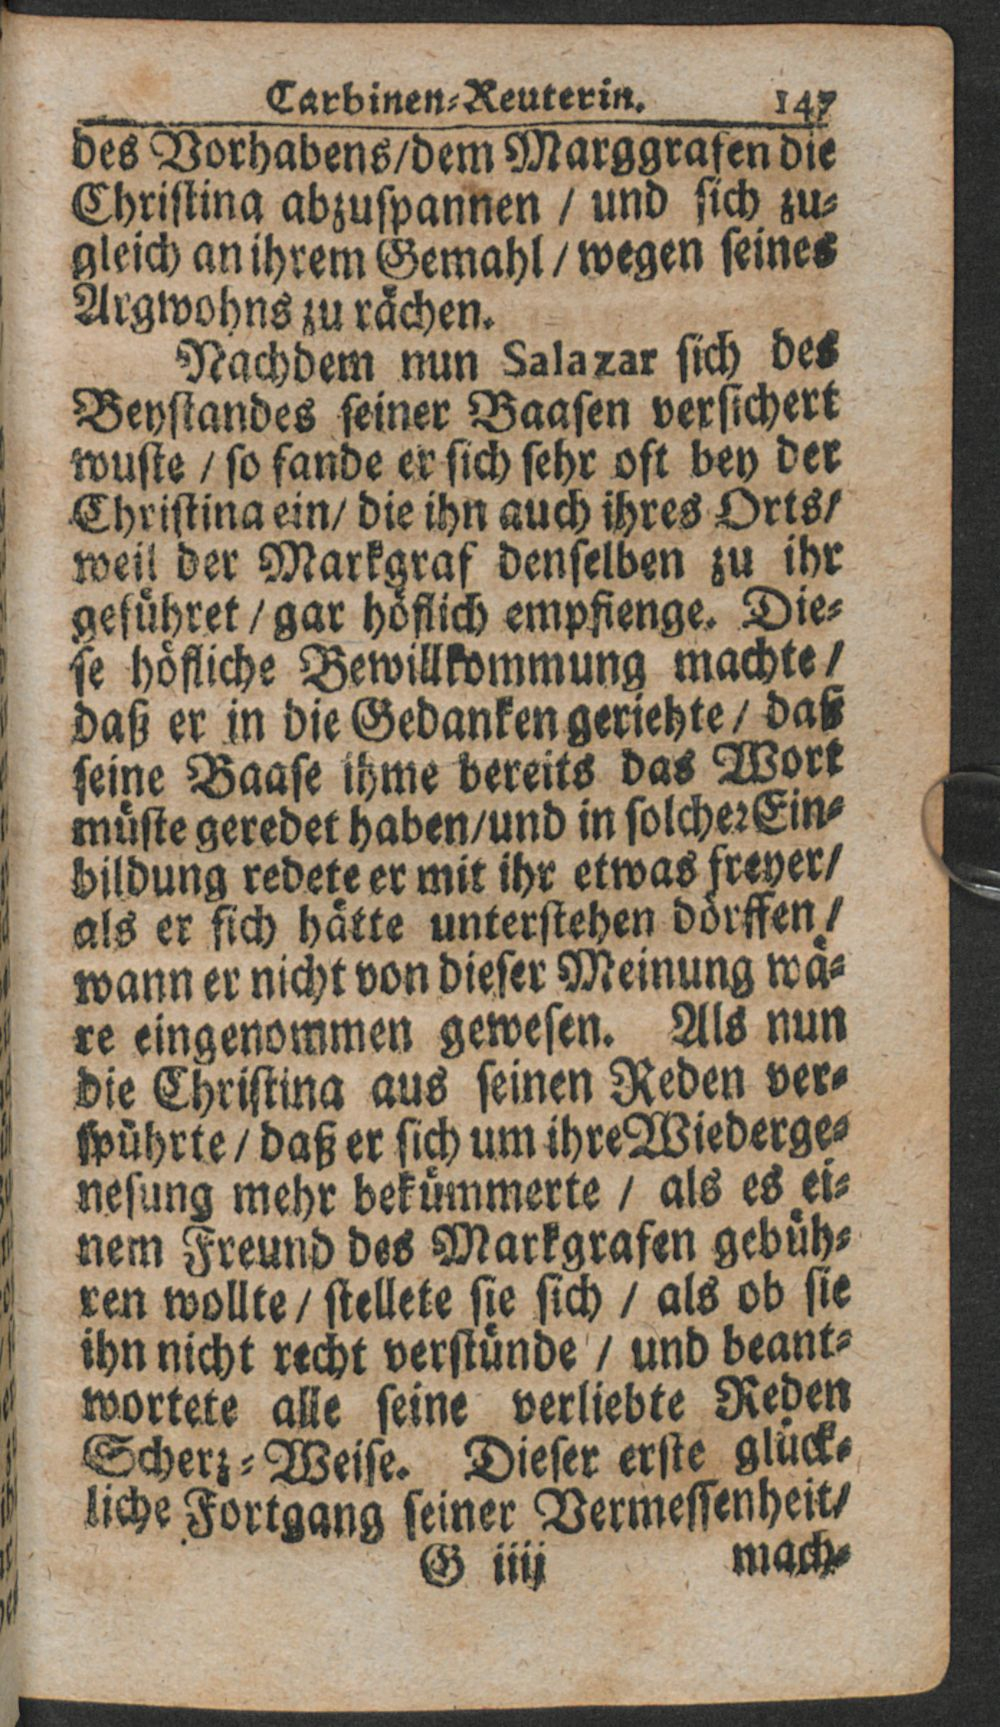 Carbinen-Reuterin. 147
des Vorhabens/dem Marggrafen die
Christina abzuspannen / und sich zu-
gleich an ihrem Gemahl / wegen seines
Argwohns zu rächen.
Nachdem nun Salazar sich des
Beystandes seiner Baasen versichert
wuste / so fande er sich sehr oft bey der
Christina ein/ die ihn auch ihres Orts/
weil der Markgraf denselben zu ihr
geführet / gar höflich empfienge. Die-
se höfliche Bewillkommung machte /
daß er in die Gedanken geriehte / daß
seine Baase ihme bereits das Wort
müste geredet haben/und in solcher Ein-
bildung redete er mit ihr etwas freyer/
als er sich hätte unterstehen dörffen /
wann er nicht von dieser Meinung wä-
re eingenommen gewesen. Als nun
die Christina aus seinen Reden ver-
spührte / daß er sich um ihre Wiederge-
nesung mehr bekümmerte / als es ei-
nem Freund des Markgrafen gebüh-
ren wollte / stellete sie sich / als ob sie
ihn nicht recht verstünde / und beant-
wortete alle seine verliebte Reden
Scherz-Weise. Dieser erste glück-
liche Fortgang seiner Vermessenheit/
G iiij mach-